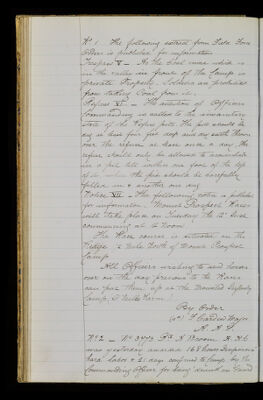 No 1. The following extract from Field Force
Orders is published for information
Trespass V – As the Coal mine which is
in the valley in front of the Camp is
private Property, Soldiers are prohibited
from taking Coal from it.
Refuse VI – The attention of Officers
Commanding is called to the unsanitary
state of the Refuse pits. The pits should be
dug at least four feet deep and dry earth thrown
over the refuse at least once a day, the
refuse should only be allowed to accumulate
in a pit till within one foot of the top
of it when the pit should be carefully
filled in & another one dug
Notice VII – The following notice is published
for information. Mount Prospect Races
will take place on Tuesday the 12th Inst
commencing at 12 Noon.
The Race course is situated on the
Ridge 2 Mile North of Mount Prospect
Camp
All Officers wishing to send horses
over on the day previous to the Races
can put them up at the Mounted Infantry
Camp,
By Order
No 2 – No 3772 Pte A Broom
was yesterday awarded 168 hours Imprisonment
hard labor & 21 days confined to Camp by the
Commanding Officer for being drunk on Guard